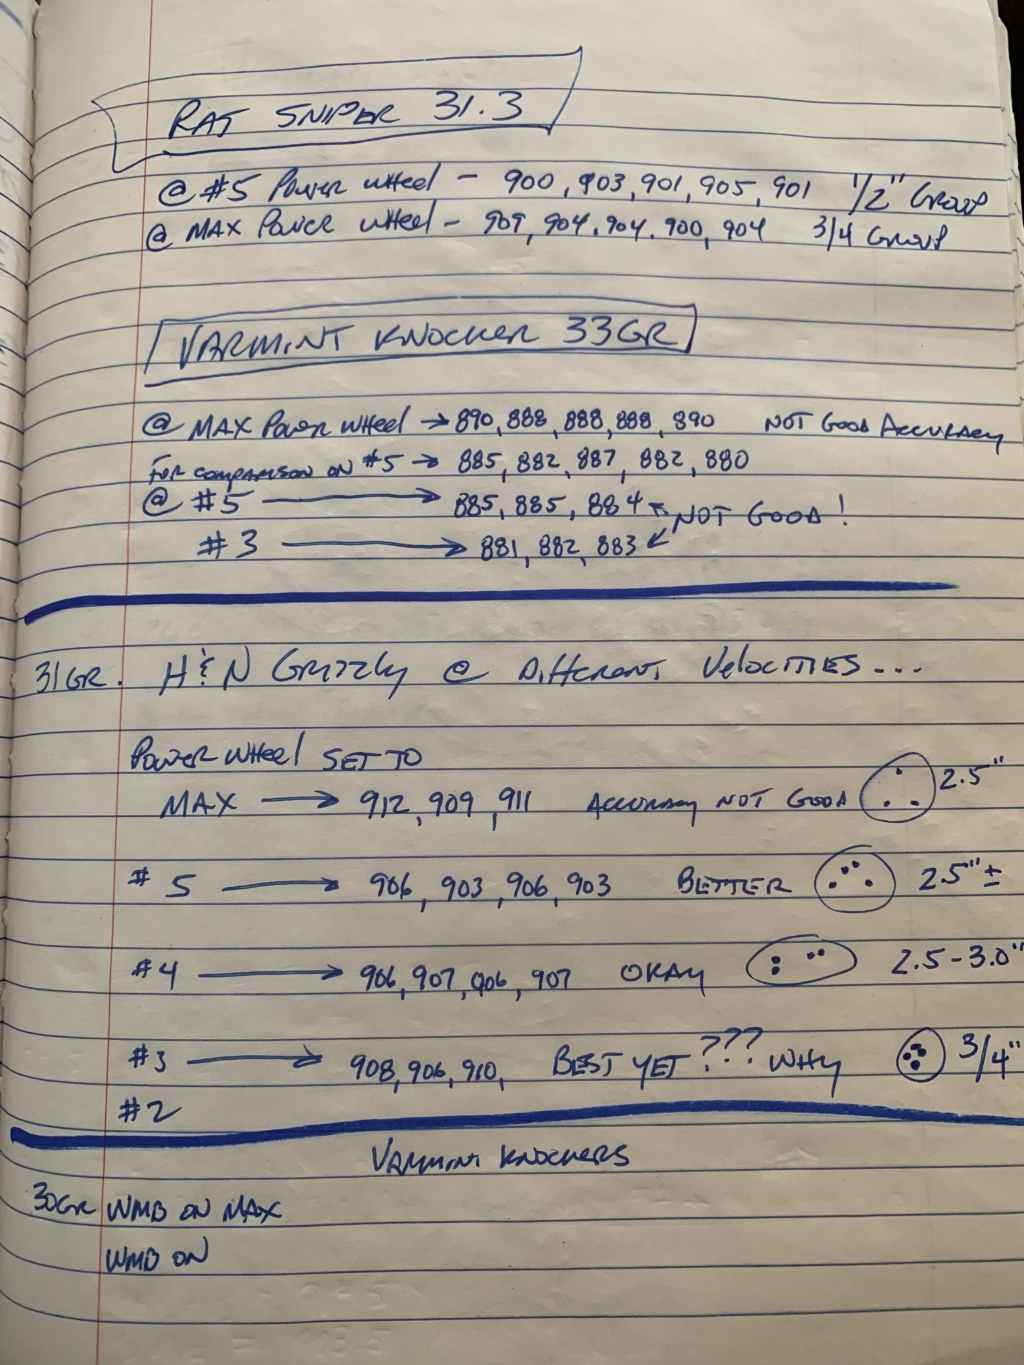 RAT SNIPER 31.3
@ #5 Power wheel - 900, 903, 901, 905, 901 1/2" Group
@ MAX Power wheel - 909, 904, 904, 900, 904 3/4 Group
VARMINT KNOCKER 33GR
@ MAX Power Wheel → 890, 888, 888, 888, 890 NOT GOOD ACCURACY
FOR COMPARISON ON #5 → 885, 882, 887, 882, 880
@ #5 → 885, 885, 884 NOT GOOD!
#3 → 881, 882, 883
31GR. H&N Grizzly @ Different Velocities...
Power wheel SET TO
MAX → 912, 909, 911 Accuracy NOT GOOD 2.5"
#5 → 906, 903, 906, 903 BETTER 2.5" ±
#4 → 906, 907, 906, 907 OKAY 2.5-3.0"
#3 → 908, 906, 910, BEST YET ??? WHY 3/4"
#2
VARMINT KNOCKERS
30GR WMB ON MAX
WMB ON